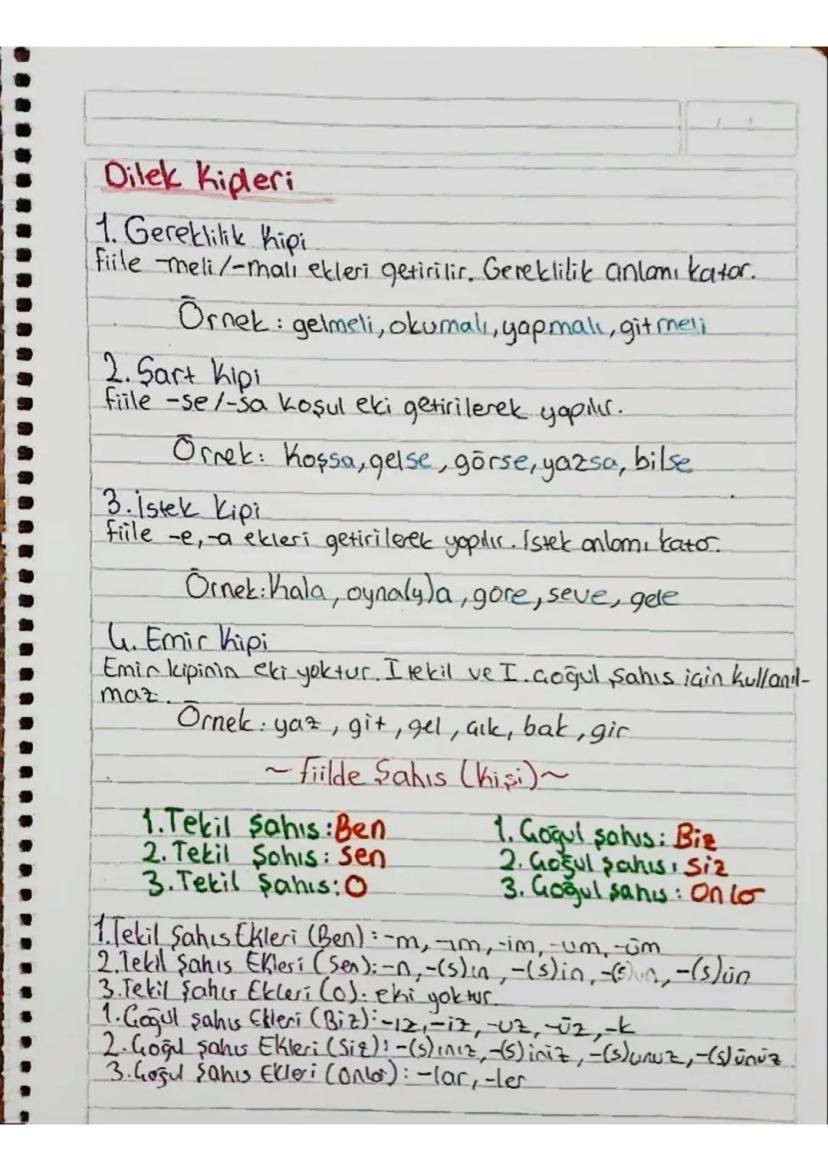 Dilek Kipleri
1. Gereklilik Kipi
fiile -meli/-malı ekleri getirilir. Gereklilik anlamı katar.
Örnek : gelmeli, okumalı, yapmalı, gitmeli
2. Şart Kipi
fiile -se/-sa koşul eki getirilerek yapılır.
Örnek: Koşsa, gelse, görse, yazsa, bilse
3. İstek Kipi
fiile -e, -a ekleri getirilerek yapılır. İstek anlamı katar.
Örnek: Kala, oyna(y)a, göre, seve, gele
4. Emir Kipi
Emir kipinin eki yoktur. I tekil ve I. çoğul şahıs için kullanıl-
maz.
Örnek : yaz, git, gel, çık, bak, gir
~ fiilde Şahıs (Kişi) ~
1. Tekil Şahıs : Ben
2. Tekil Şahıs : Sen
3. Tekil Şahıs : O
1. Çoğul şahıs : Biz
2. Çoğul şahıs : Siz
3. Çoğul şahıs : Onlar
1. Tekil Şahıs Ekleri (Ben) : -m, -ım, -im, -um, -üm
2. Tekil Şahıs Ekleri (Sen) : -n, -(s)ın, -(s)in, -(s)un, -(s)ün
3. Tekil Şahıs Ekleri (O) : eki yoktur.
1. Çoğul şahıs Ekleri (Biz) : -ız, -iz, -uz, -üz, -k
2. Çoğul şahıs Ekleri (Siz) : -(s)ınız, -(s)iniz, -(s)unuz, -(s)ünüz
3. Çoğul Şahıs Ekleri (Onlar) : -lar, -ler